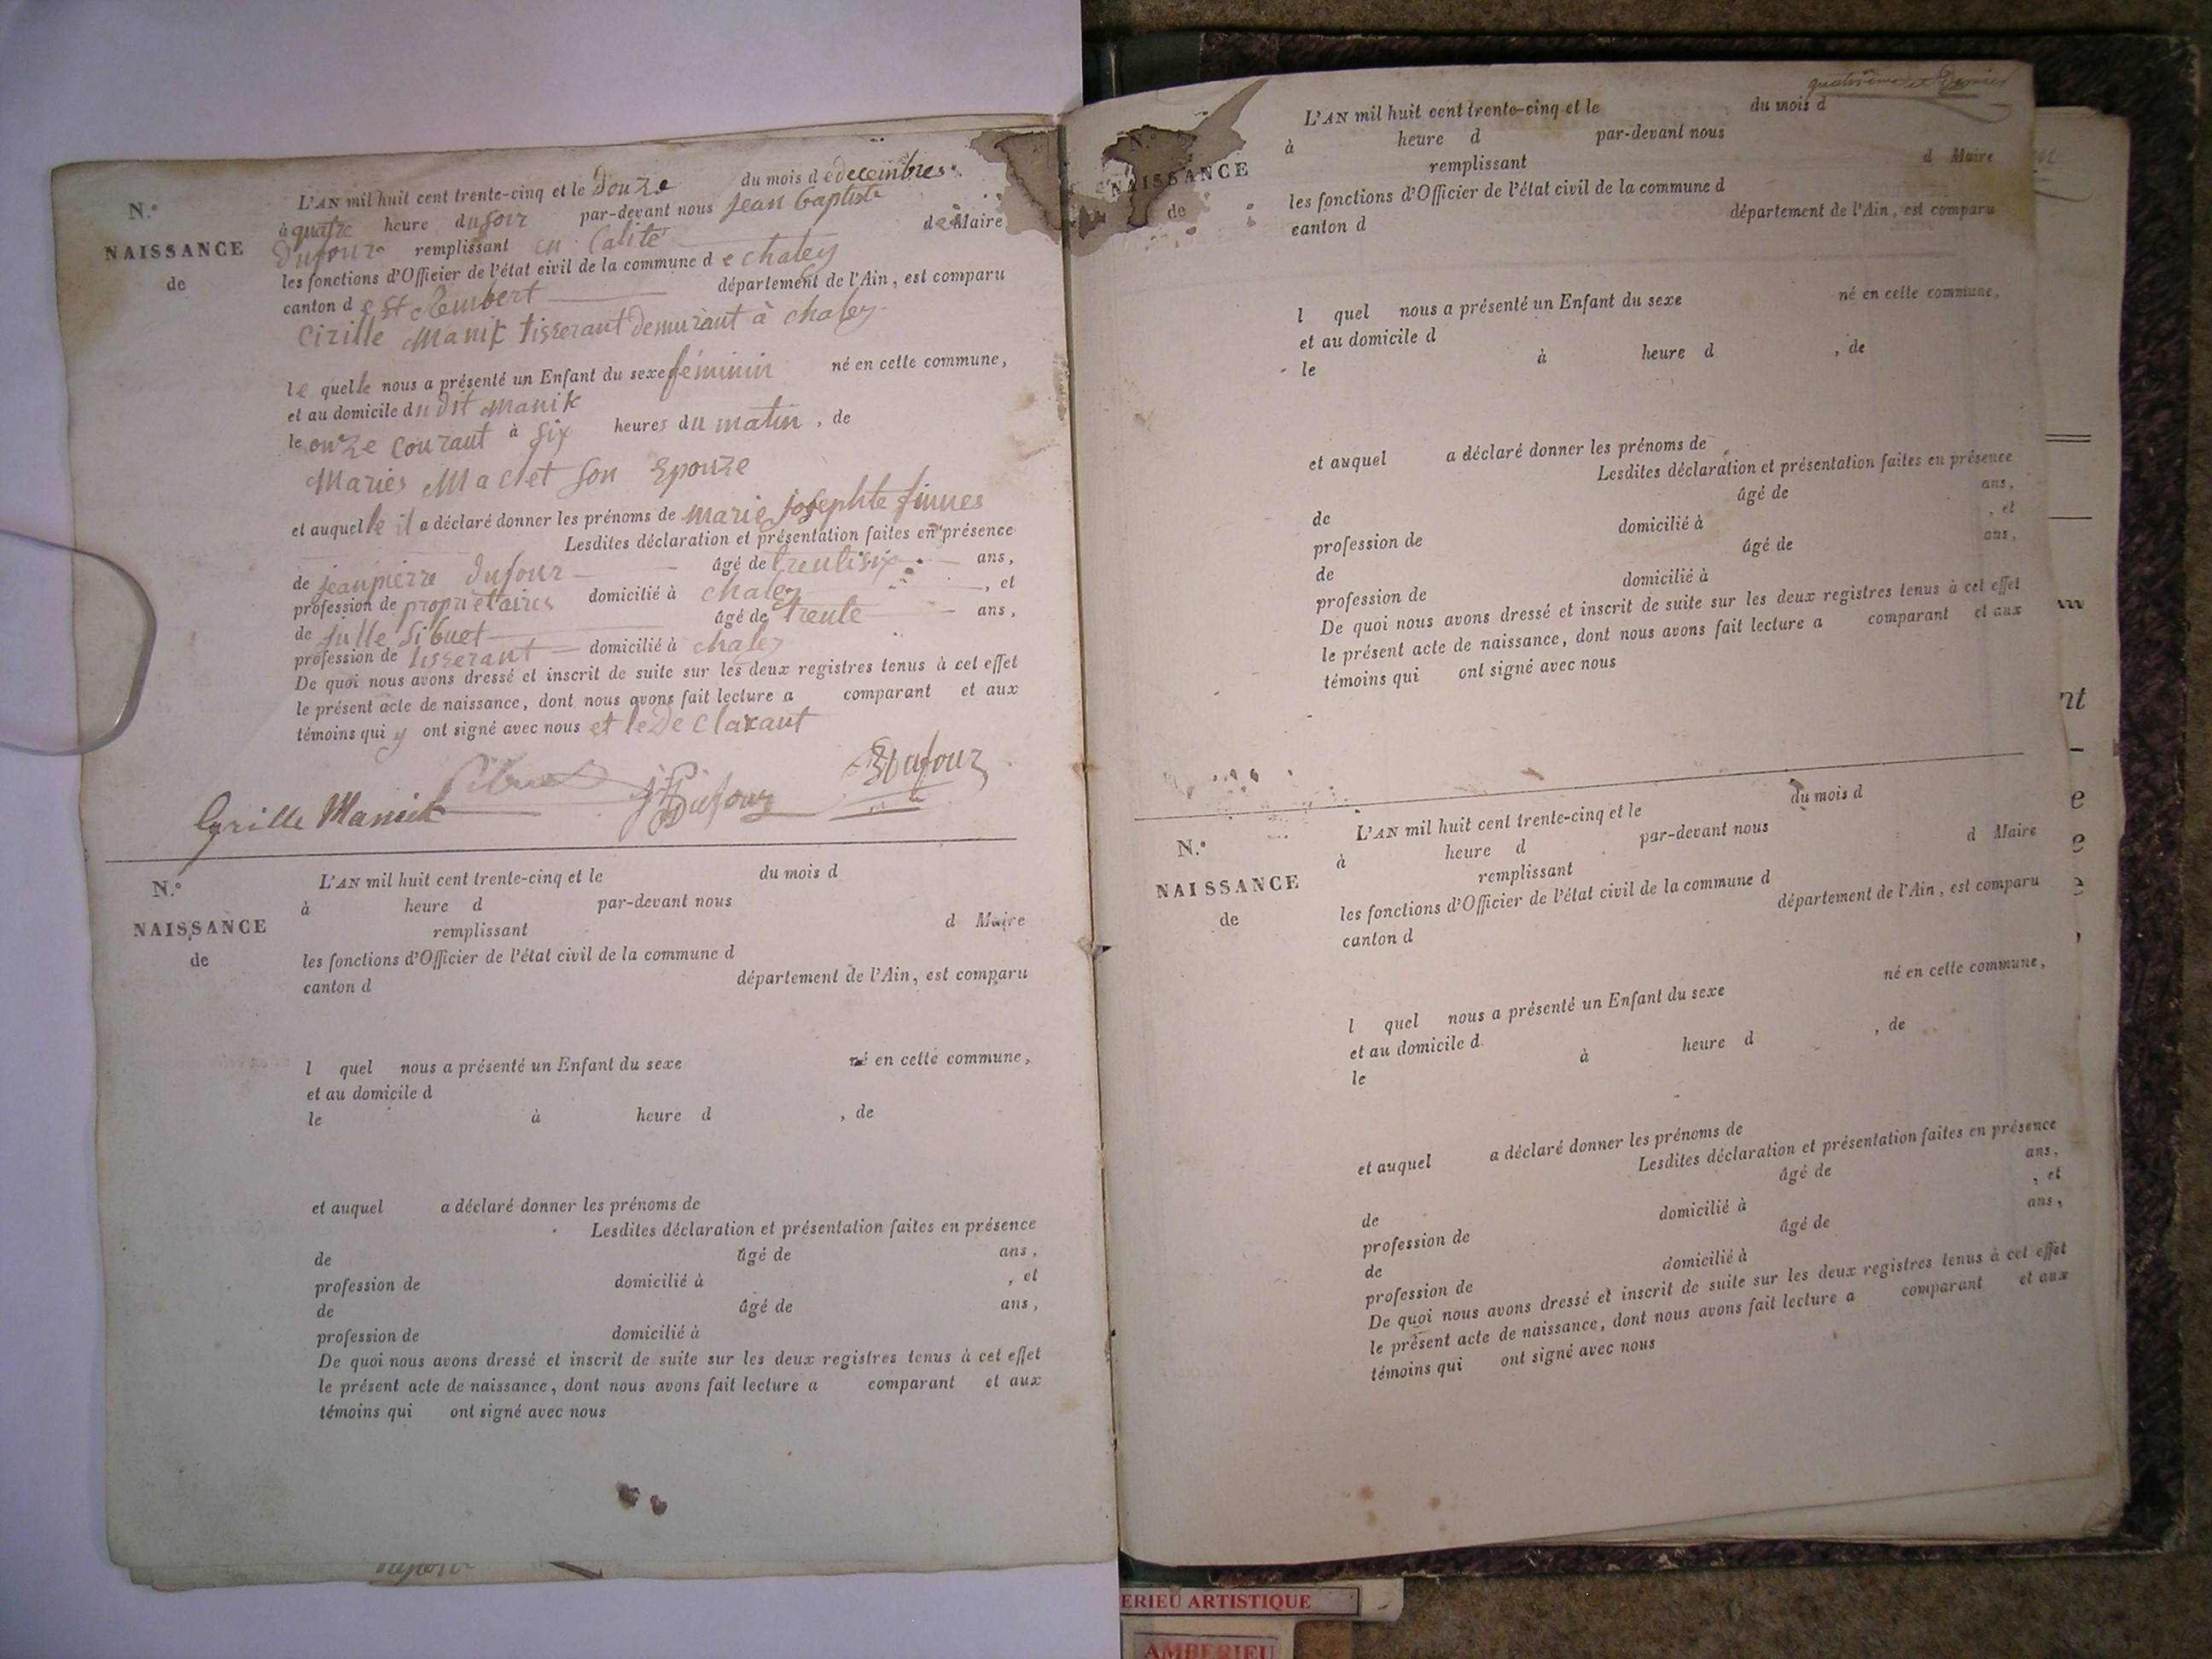 N.º
NAISSANCE
de
L'AN mil huit cent trente-cinq et le Douze du mois de decembres
à quatre heure du soir par-devant nous jean baptiste
Dufour remplissant en Calité de Maire
les fonctions d'Officier de l'état civil de la commune de chaley
canton de St Rembert département de l'Ain, est comparu
Cirille Manik tisserant demurant à chaley
le quelle nous a présenté un Enfant du sexe féminin né en cette commune,
et au domicile du dit Manik
le onze courant à six heures du matin, de
Maries Maclet son Epouze
et auquelle il a déclaré donner les prénoms de marie josephte
Lesdites déclaration et présentation faites en présence
de jeanpierre Dufour âgé de trentisix ans,
profession de proprietaires domicilié à chaley, et
de julle Sibuet âgé de trente ans,
profession de tisserant domicilié à chaley
De quoi nous avons dressé et inscrit de suite sur les deux registres tenus à cet effet
le présent acte de naissance, dont nous avons fait lecture a comparant et aux
témoins qui y ont signé avec nous et le De claxant
Cyrille Manick Sibuet JP Dufour Dufour
N.º
NAISSANCE
de
L'AN mil huit cent trente-cinq et le du mois d
à heure d par-devant nous
remplissant d Maire
les fonctions d'Officier de l'état civil de la commune d
canton d département de l'Ain, est comparu
l quel nous a présenté un Enfant du sexe né en cette commune,
et au domicile d
le à heure d , de
et auquel a déclaré donner les prénoms de
Lesdites déclaration et présentation faites en présence
de âgé de ans,
profession de domicilié à , et
de âgé de ans,
profession de domicilié à
De quoi nous avons dressé et inscrit de suite sur les deux registres tenus à cet effet
le présent acte de naissance, dont nous avons fait lecture a comparant et aux
témoins qui ont signé avec nous
quatrieme et Dernier
N.º
NAISSANCE
de
L'AN mil huit cent trente-cinq et le du mois d
à heure d par-devant nous
remplissant d Maire
les fonctions d'Officier de l'état civil de la commune d
canton d département de l'Ain, est comparu
l quel nous a présenté un Enfant du sexe né en cette commune,
et au domicile d
le à heure d , de
et auquel a déclaré donner les prénoms de
Lesdites déclaration et présentation faites en présence
de âgé de ans,
profession de domicilié à , et
de âgé de ans,
profession de domicilié à
De quoi nous avons dressé et inscrit de suite sur les deux registres tenus à cet effet
le présent acte de naissance, dont nous avons fait lecture a comparant et aux
témoins qui ont signé avec nous
N.º
NAISSANCE
de
L'AN mil huit cent trente-cinq et le du mois d
à heure d par-devant nous
remplissant d Maire
les fonctions d'Officier de l'état civil de la commune d
canton d département de l'Ain, est comparu
l quel nous a présenté un Enfant du sexe né en cette commune,
et au domicile d
le à heure d , de
et auquel a déclaré donner les prénoms de
Lesdites déclaration et présentation faites en présence
de âgé de ans,
profession de domicilié à , et
de âgé de ans,
profession de domicilié à
De quoi nous avons dressé et inscrit de suite sur les deux registres tenus à cet effet
le présent acte de naissance, dont nous avons fait lecture a comparant et aux
témoins qui ont signé avec nous
ERIEU ARTISTIQUE
AMBERIEU